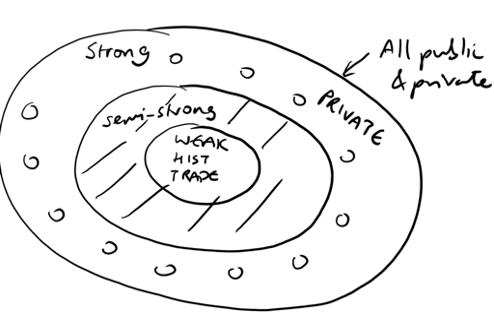 Strong
All public
& private
PRIVATE
semi-strong
WEAK
HIST
TRADE